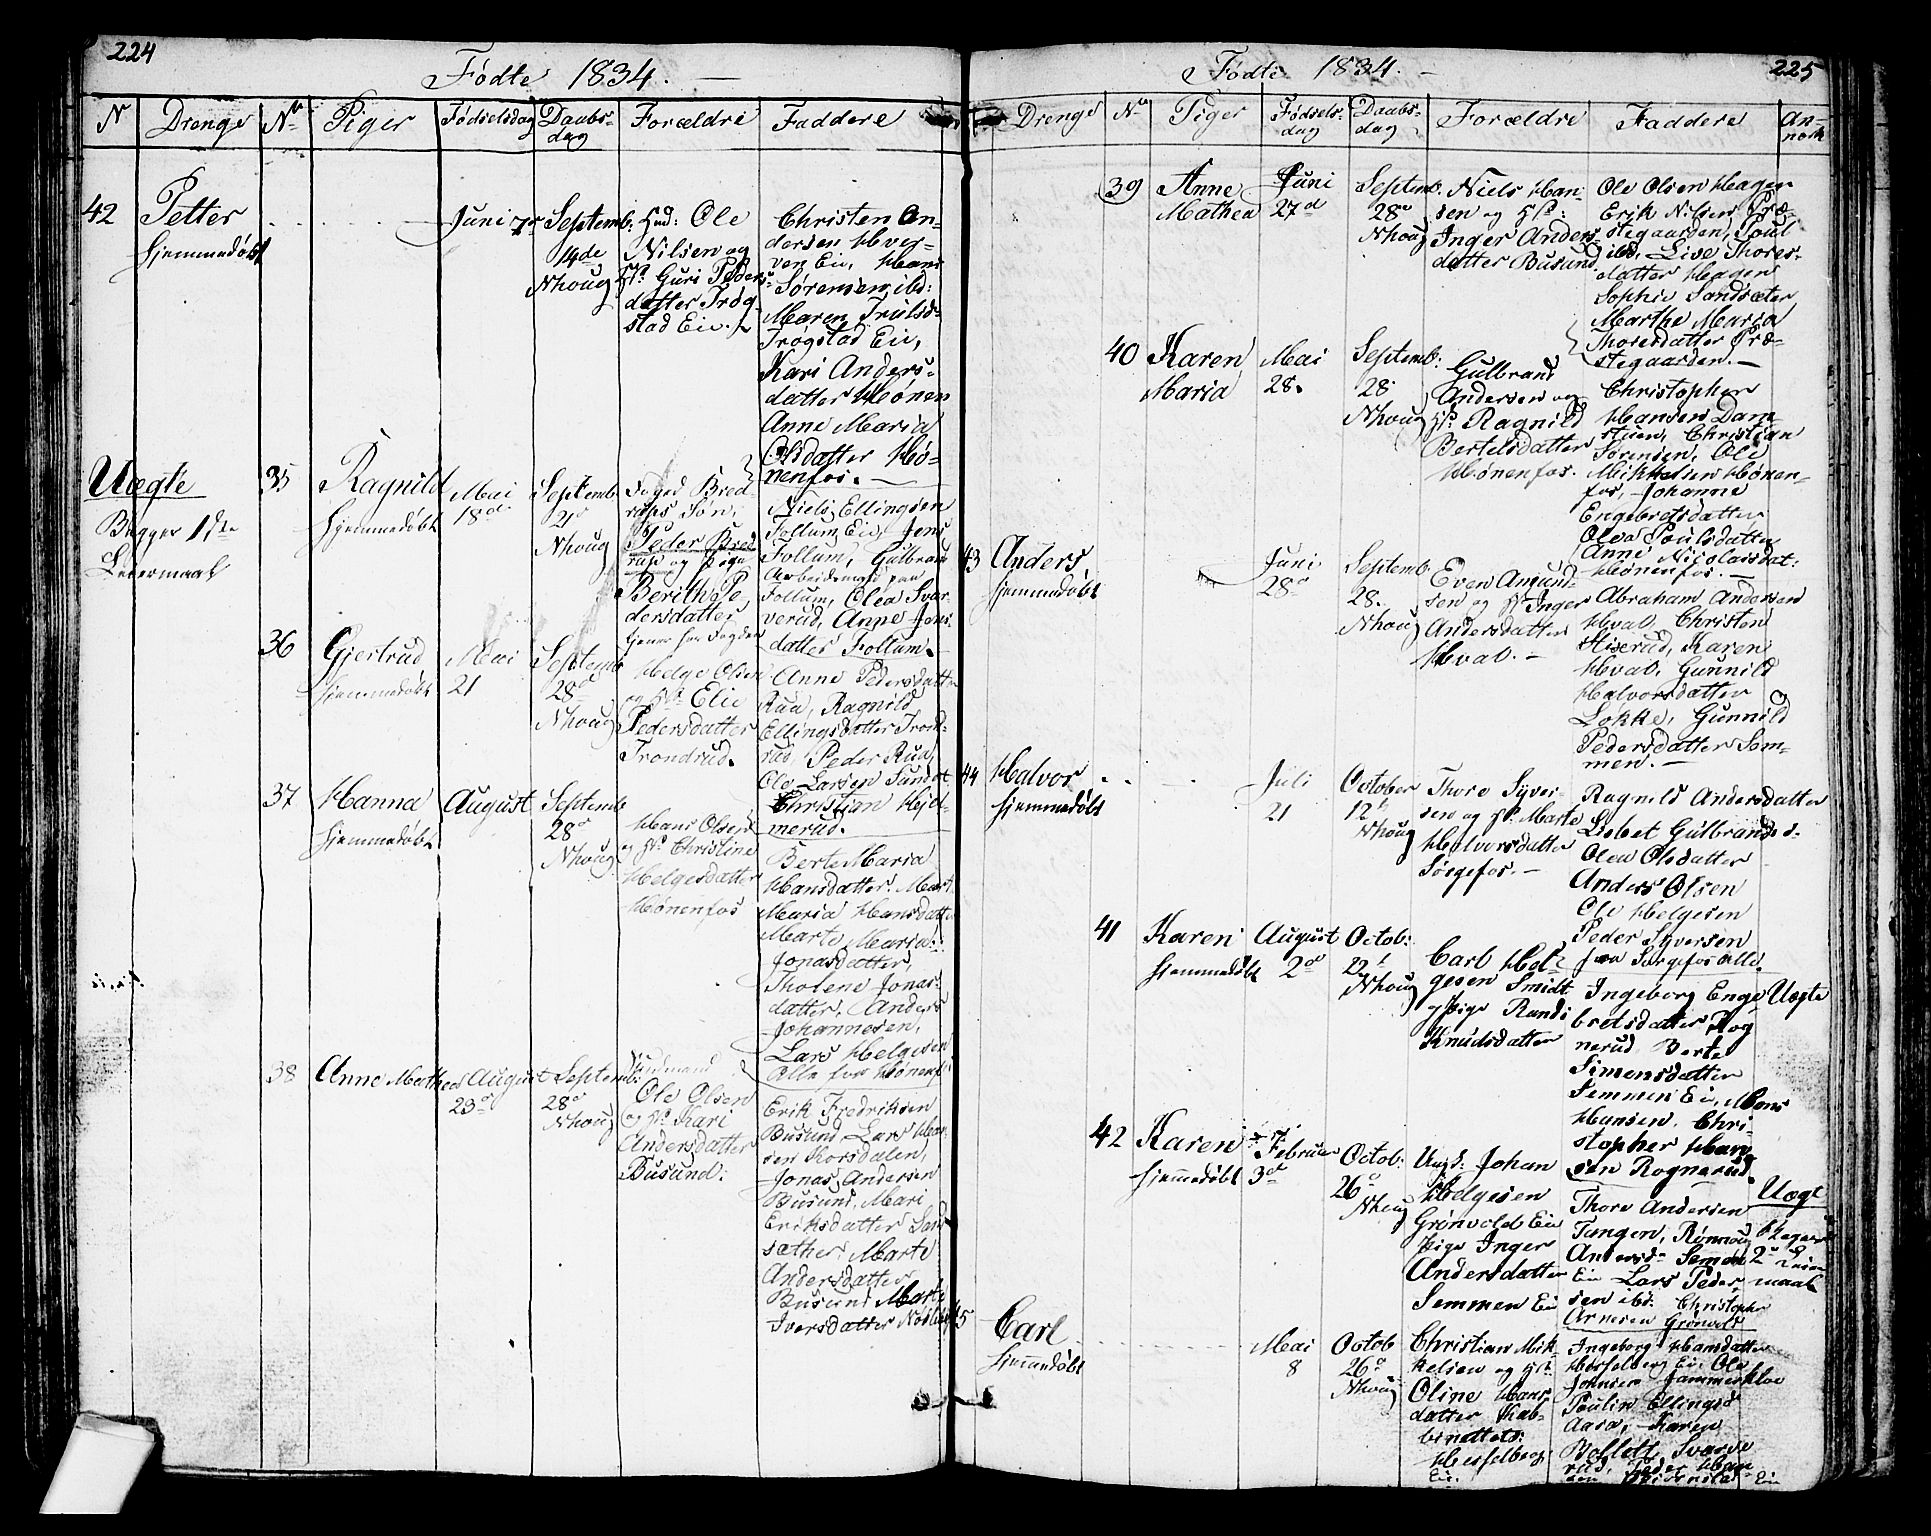 224
Födte 1834. —
N Drenge No Piger Födselsdag Daabs-dag Forældre Faddere
42 Petter
hjemmedöbt
Juni 7de
Septemb:
14de
Nhoug
Ole
Nilsen og
Guri Peders-
datter Trög-
stad Eie.
Christen An-
dersen Hver-
ven Eie, Hans
Sörensen ibd:
Maren Trulsd-
Trögstad Eie,
Kari Anders-
datter Hönen
Anne Maria
Olsdatter Hö-
nenfos. —
Uægte
Begges 1ste
Leiermaal
35 Ragnild
hjemmedöbt
Mai
18de
Septemb
21
Nhoug
Foged Bred
rups Sön,
Peder Bred
rup og Pige
Berith Pe-
dersdatter
tjener hos Fogden
Niels Ellingsen
Follum Eie, Jens
Follum, Gulbrand
Arbeidsmand paa
Follum, Olea Svar-
verud, Anne Jens-
datter Follum.
36 Gjertrud
hjemmedöbt
Mai
21
Septemb
28de
Nhoug
Helge Olsen
og Elie
Pedersdatter
Trondrud.
Anne Pedersdatter
Rua, Ragnild
Ellingsdatter Trond-
rud, Peder Rua,
Ole Larsen Sundet
Christian Hjel-
merud.
37 Hanna
hjemmedöbt
August
Septemb
28
Nhoug
Hans Olsen
og Christine
Helgesdatter
Hönenfos
Berte Maria
Hansdatter, Mart
Maria Hansdatter
Marte Maria
Jonasdatter,
Tholene Jonas-
datter, Anders
Johannesen,
Lars Helgesen
Alle fra Hönenf
38 Anne Mathea
August
23
Septemb:
28
Nhoug
Huusmand
Ole Olsen
og Kari
Andersdatter
Busund.
Erik Fredriksen
Busund, Lars Han-
sen Thorsdalen,
Jonas Andersen
Busund, Mari
Eriksdatter Sand
sæther Marte
Andersdatter
Busund Marte
Iversdatter
225
Födte 1834. —
Drenge No Piger Födsels-dag Daabs-dag Forældre Faddere An-mærk
39 Anne
Mathea
Juni
27de
Septemb:
28
Nhoug
Niels Han-
sen og
Inger Anders-
datter Busund
Ole Olsen Hagen
Erik Nilsen Præ-
stegaarden, Poul
ibd, Lise Thores-
datter Hagen
Sophie Sandsæter
Marthe Maria
Thoresdatter Præ-
stegaarden. —
40 Karen
Maria
Mai
28.
Septemb:
28
Nhoug
Gulbrand
Andersen og
Ragnild
Bertelsdatter
Hönenfos.
Christopher
Hansen Dam-
stuen, Christian
Sörensen, Ole
Mikkelsen Hönen-
fos, Johanne
Engebretsdatter
Olea Poulsdatter
Anne Nicolaisdat:
Hönenfos. —
43 Anders,
hjemmedöbt
Juni
28
Septemb
28.
Nhoug
Even Amund-
sen og Inger
Andersdatter
Hval. —
Abraham Andersen
Hval, Christen
Hiserud, Karen
Hval, Gunnild
Halvorsdatter
Lokke, Gunnild
Pedersdatter Sem-
men. —
44 Halvor
hjemmedöbt
Juli
21
October
12
Nhoug
Thore Syver-
sen og Marte
Halvorsdatter
Sörgefos. —
Ragnild Andersdatter
Lisbet Gulbrandsd-
Olea Olsdatter
Anders Olsen
Ole Helgesen
Peder Syversen
fra Sørgefos alle.
41 Karen
hjemmedöbt
August
2
Octob:
12
Nhoug
Carl Hel-
gesen Smidt
og Pige Randi
Knudsdatter
Ingeborg Enge
bretsdatter Rog
nerud, Berte
Simensdatter
Semmen Eie, Mons
Hansen, Chri-
stopher Han
sen Rognerud.
Uægte
42 Karen
hjemmedöbt
Februar
3de
Octob:
26
Nhoug
Ungk: Johan
Helgesen
Grönvold Eie
Pige Inger
Andersdatter
Semmen Eie
Thore Andersen
Tangen, Rönnoug
Andersd- Semmen
Eie Lars Peder-
sen ibd: Christopher
Arnesen Grönvold
Uægte
Begges
2de Leier
maal
45 Carl
hjemmedöbt
Mai
8
Octob
26
Nhoug
Christian Mik-
kelsen og
Oline Hans-
datter Kab-
binettets:
Hesselberg
Eie.
Ingeborg Hansdatter
Hesselberg Eie, Ole
Johnsen
Poulin Ellingsd
Aasa, Karen
Svarve
rud, Peder Han-
sen Eie